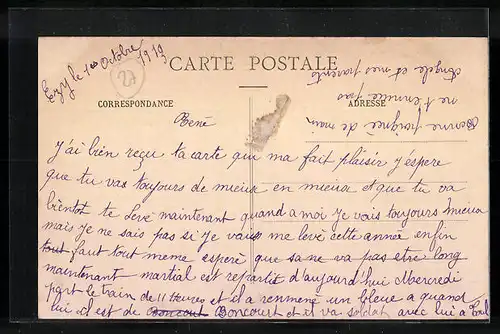 Ezy le 1er Octobre 1919
27
CARTE POSTALE
CORRESPONDANCE
ADRESSE
Bené
J'ai bien reçu ta carte qui ma fait plaisir j'éspere
que tu vas toujours de mieux en mieux et que tu va
bientot te levé maintenant quand a moi je vais toujours mieux
mais je ne sais pas si je vais me levé cette année enfin
tout faut tout meme esperé que sa ne va pas etre long
maintenant martial est repartit d'aujourd'hui Mercredi
part le train de 11 Heures et il a renmené un bleue a quand
lui il est de Boncourt Boncourt et il va soldat avec lui a
Bonne poignée de main
ne t'ennuie pas
Angele et mes parents